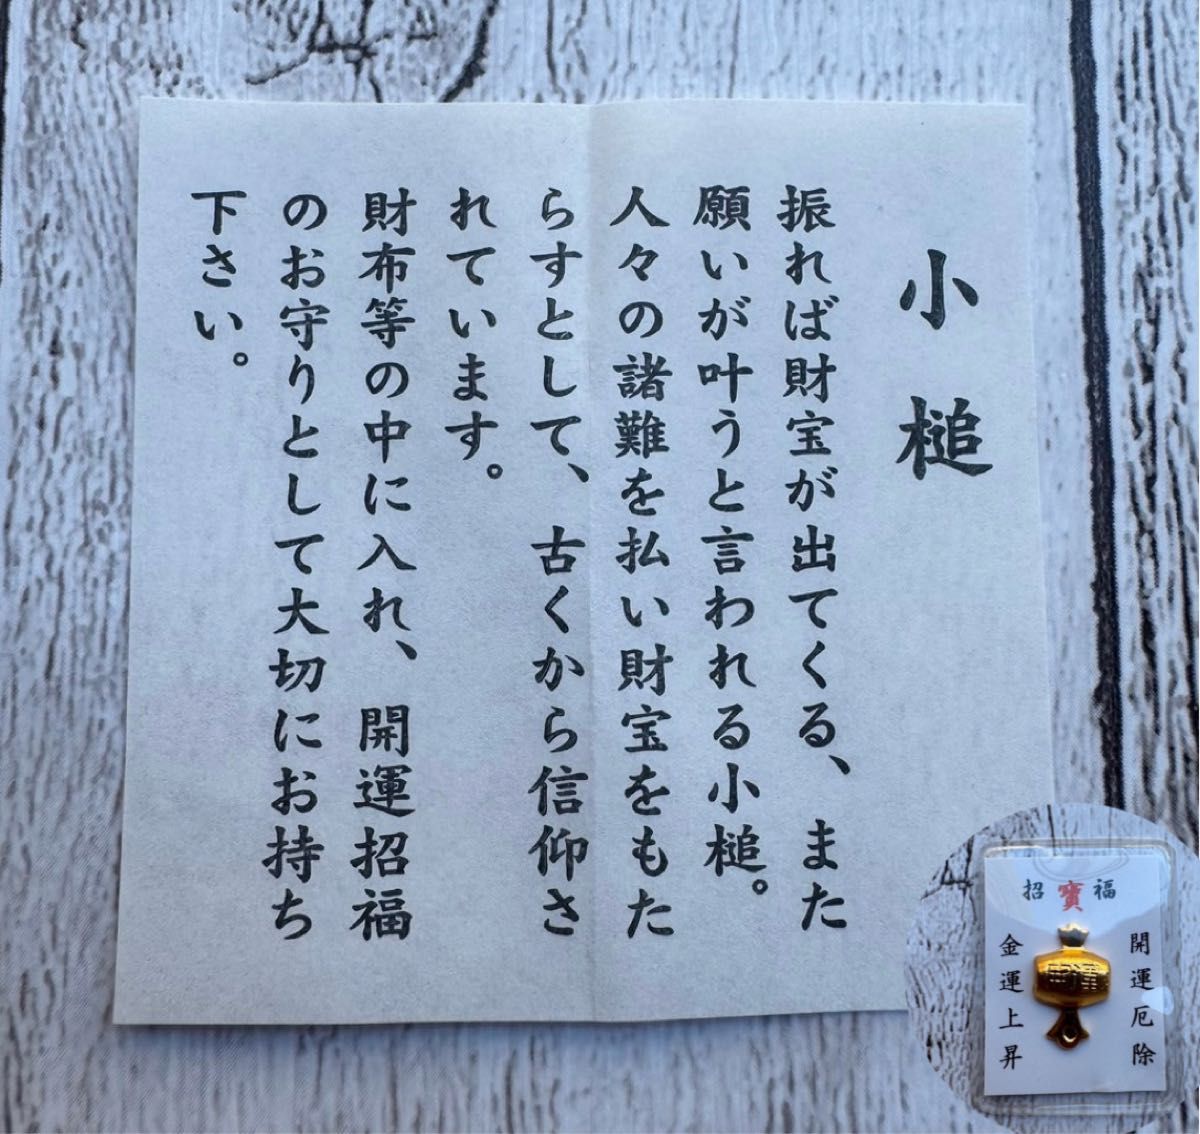 小槌
振れば財宝が出てくる、また
願いが叶うと言われる小槌。
人々の諸難を払い財宝をもた
らすとして、古くから信仰さ
れています。
財布等の中に入れ、開運招福
のお守りとして大切にお持ち
下さい。
招寳福
開運厄除
金運上昇